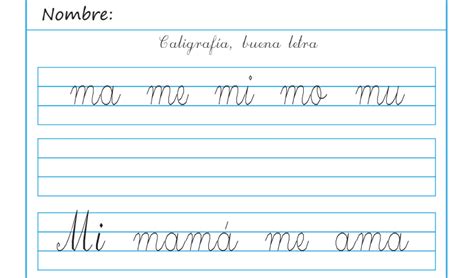 Nombre:
Caligrafía, buena letra
ma me mi mo mu
Mi mamá me ama